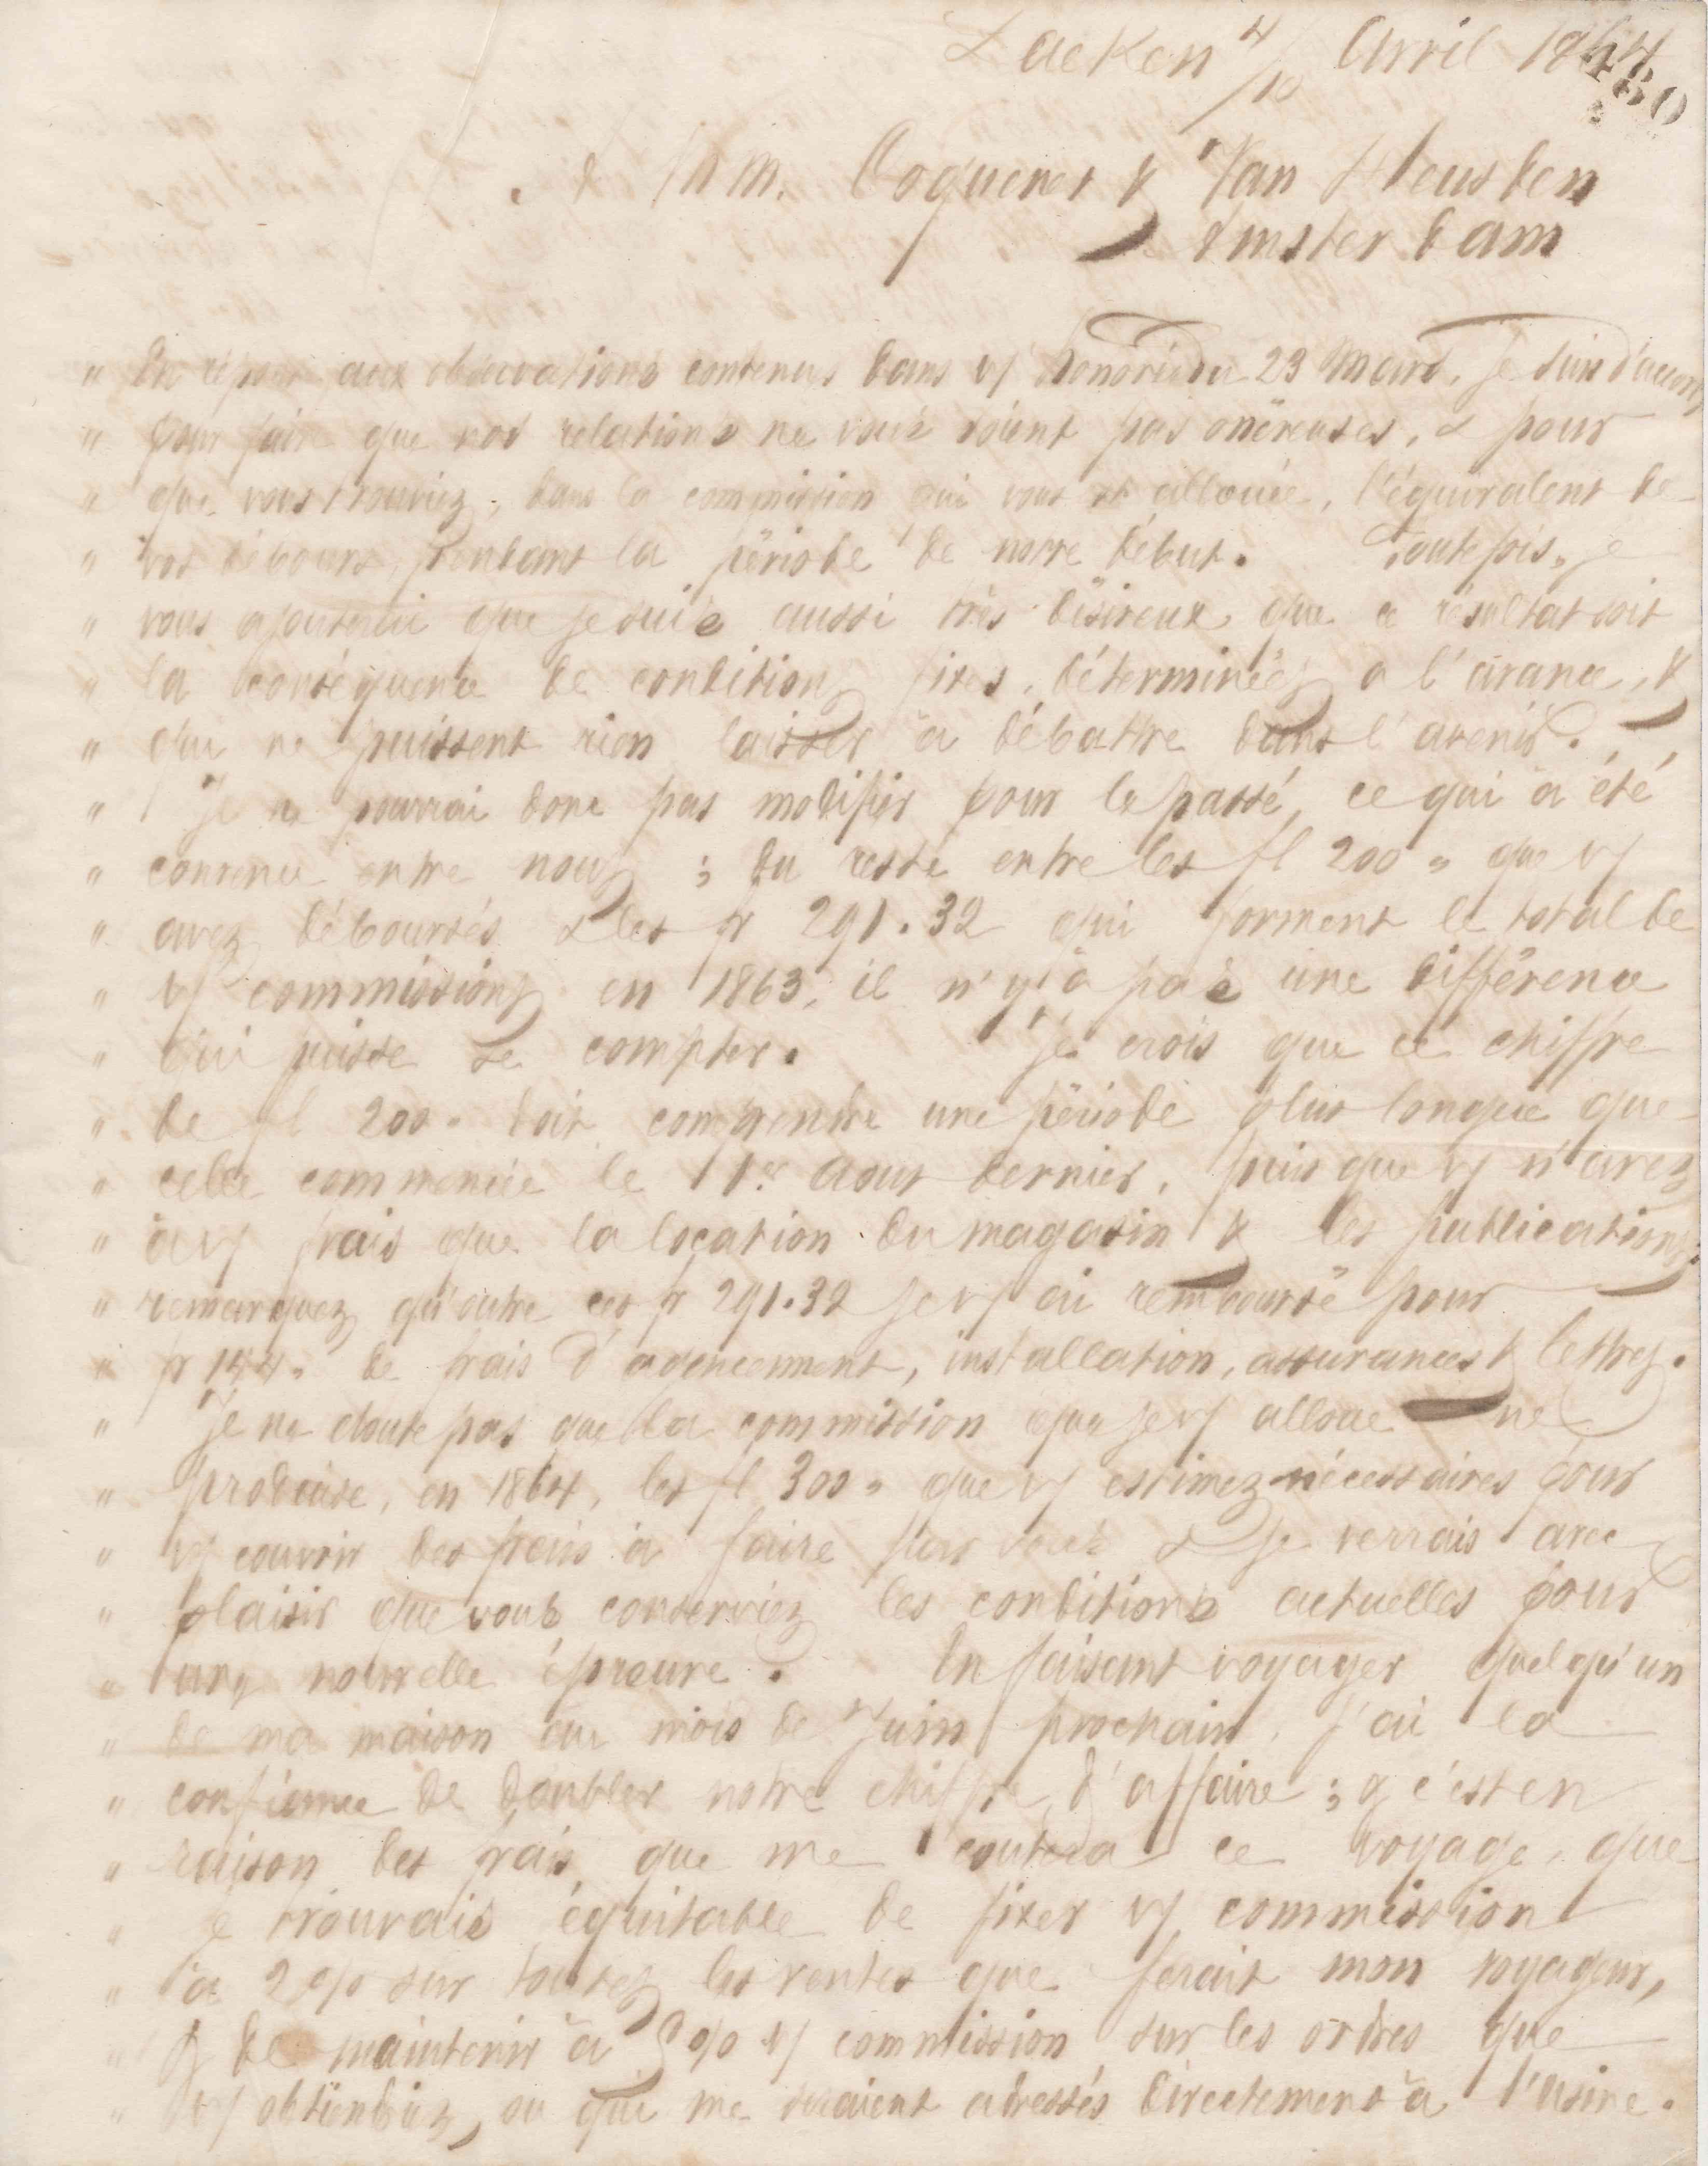 Laeken 4/10 Avril 1864
480
à MM. Coquenet & Van Heusden
Amsterdam
" En réponse aux observations contenues dans v/ honorée du 23 Mars, je suis d'accord
" pour faire que nos relations ne vous soient pas onéreuses, & pour
" que vous trouviez, dans la commission qui vous est allouée, l'équivalent de
" vos débours, pendant la période de notre début. Toutefois, je
" vous ajouterai que je suis aussi très désireux que ce résultat soit
" la conséquence de conditions fixes, déterminées à l'avance, &
" qui ne puissent rien laisser à débattre dans l'avenir.
" Je ne pourrai donc pas modifier pour le passé, ce qui à été
" convenu entre nous ; du reste entre les fl 200 " que v/
" avez déboursés & les fr 291.32 qui forment le total de
" v/ commissions en 1863, il n'y a pas une différence
" qui puisse se compter. Je crois que ce chiffre
" de fl 200 " doit comprendre une période plus longue que
" celle commencée le 1er Aout dernier, puisque v/ n'avez
" à v/ frais que la location du magasin & les publications.
" remarquez qu'outre ces fr 291.32 je v/ ai remboursé pour
" fr 144 " de frais d'agencement, installation, assurances & lettres.
" Je ne doute pas que la commission que je v/ alloue ne
" produise, en 1864, les fl 300 " que v/ estimez nécessaires pour
" v/ couvrir des frais à faire par vous & je verrais avec
" plaisir que vous conserviez les conditions actuelles pour
" une nouvelle épreuve. En faisant voyager quelqu'un
" de ma maison au mois de Juin prochain, j'ai la
" confiance de doubler notre chiffre d'affaire ; & c'est en
" raison des frais que me coutera ce voyage, que
" je trouvais équitable de fixer v/ commission
" à 2 % sur toutes les ventes que ferait mon voyageur,
" & de maintenir à 3 % v/ commission sur les ordres que
" v/ obtiendriez, ou qui me seraient adressés directement à l'usine.